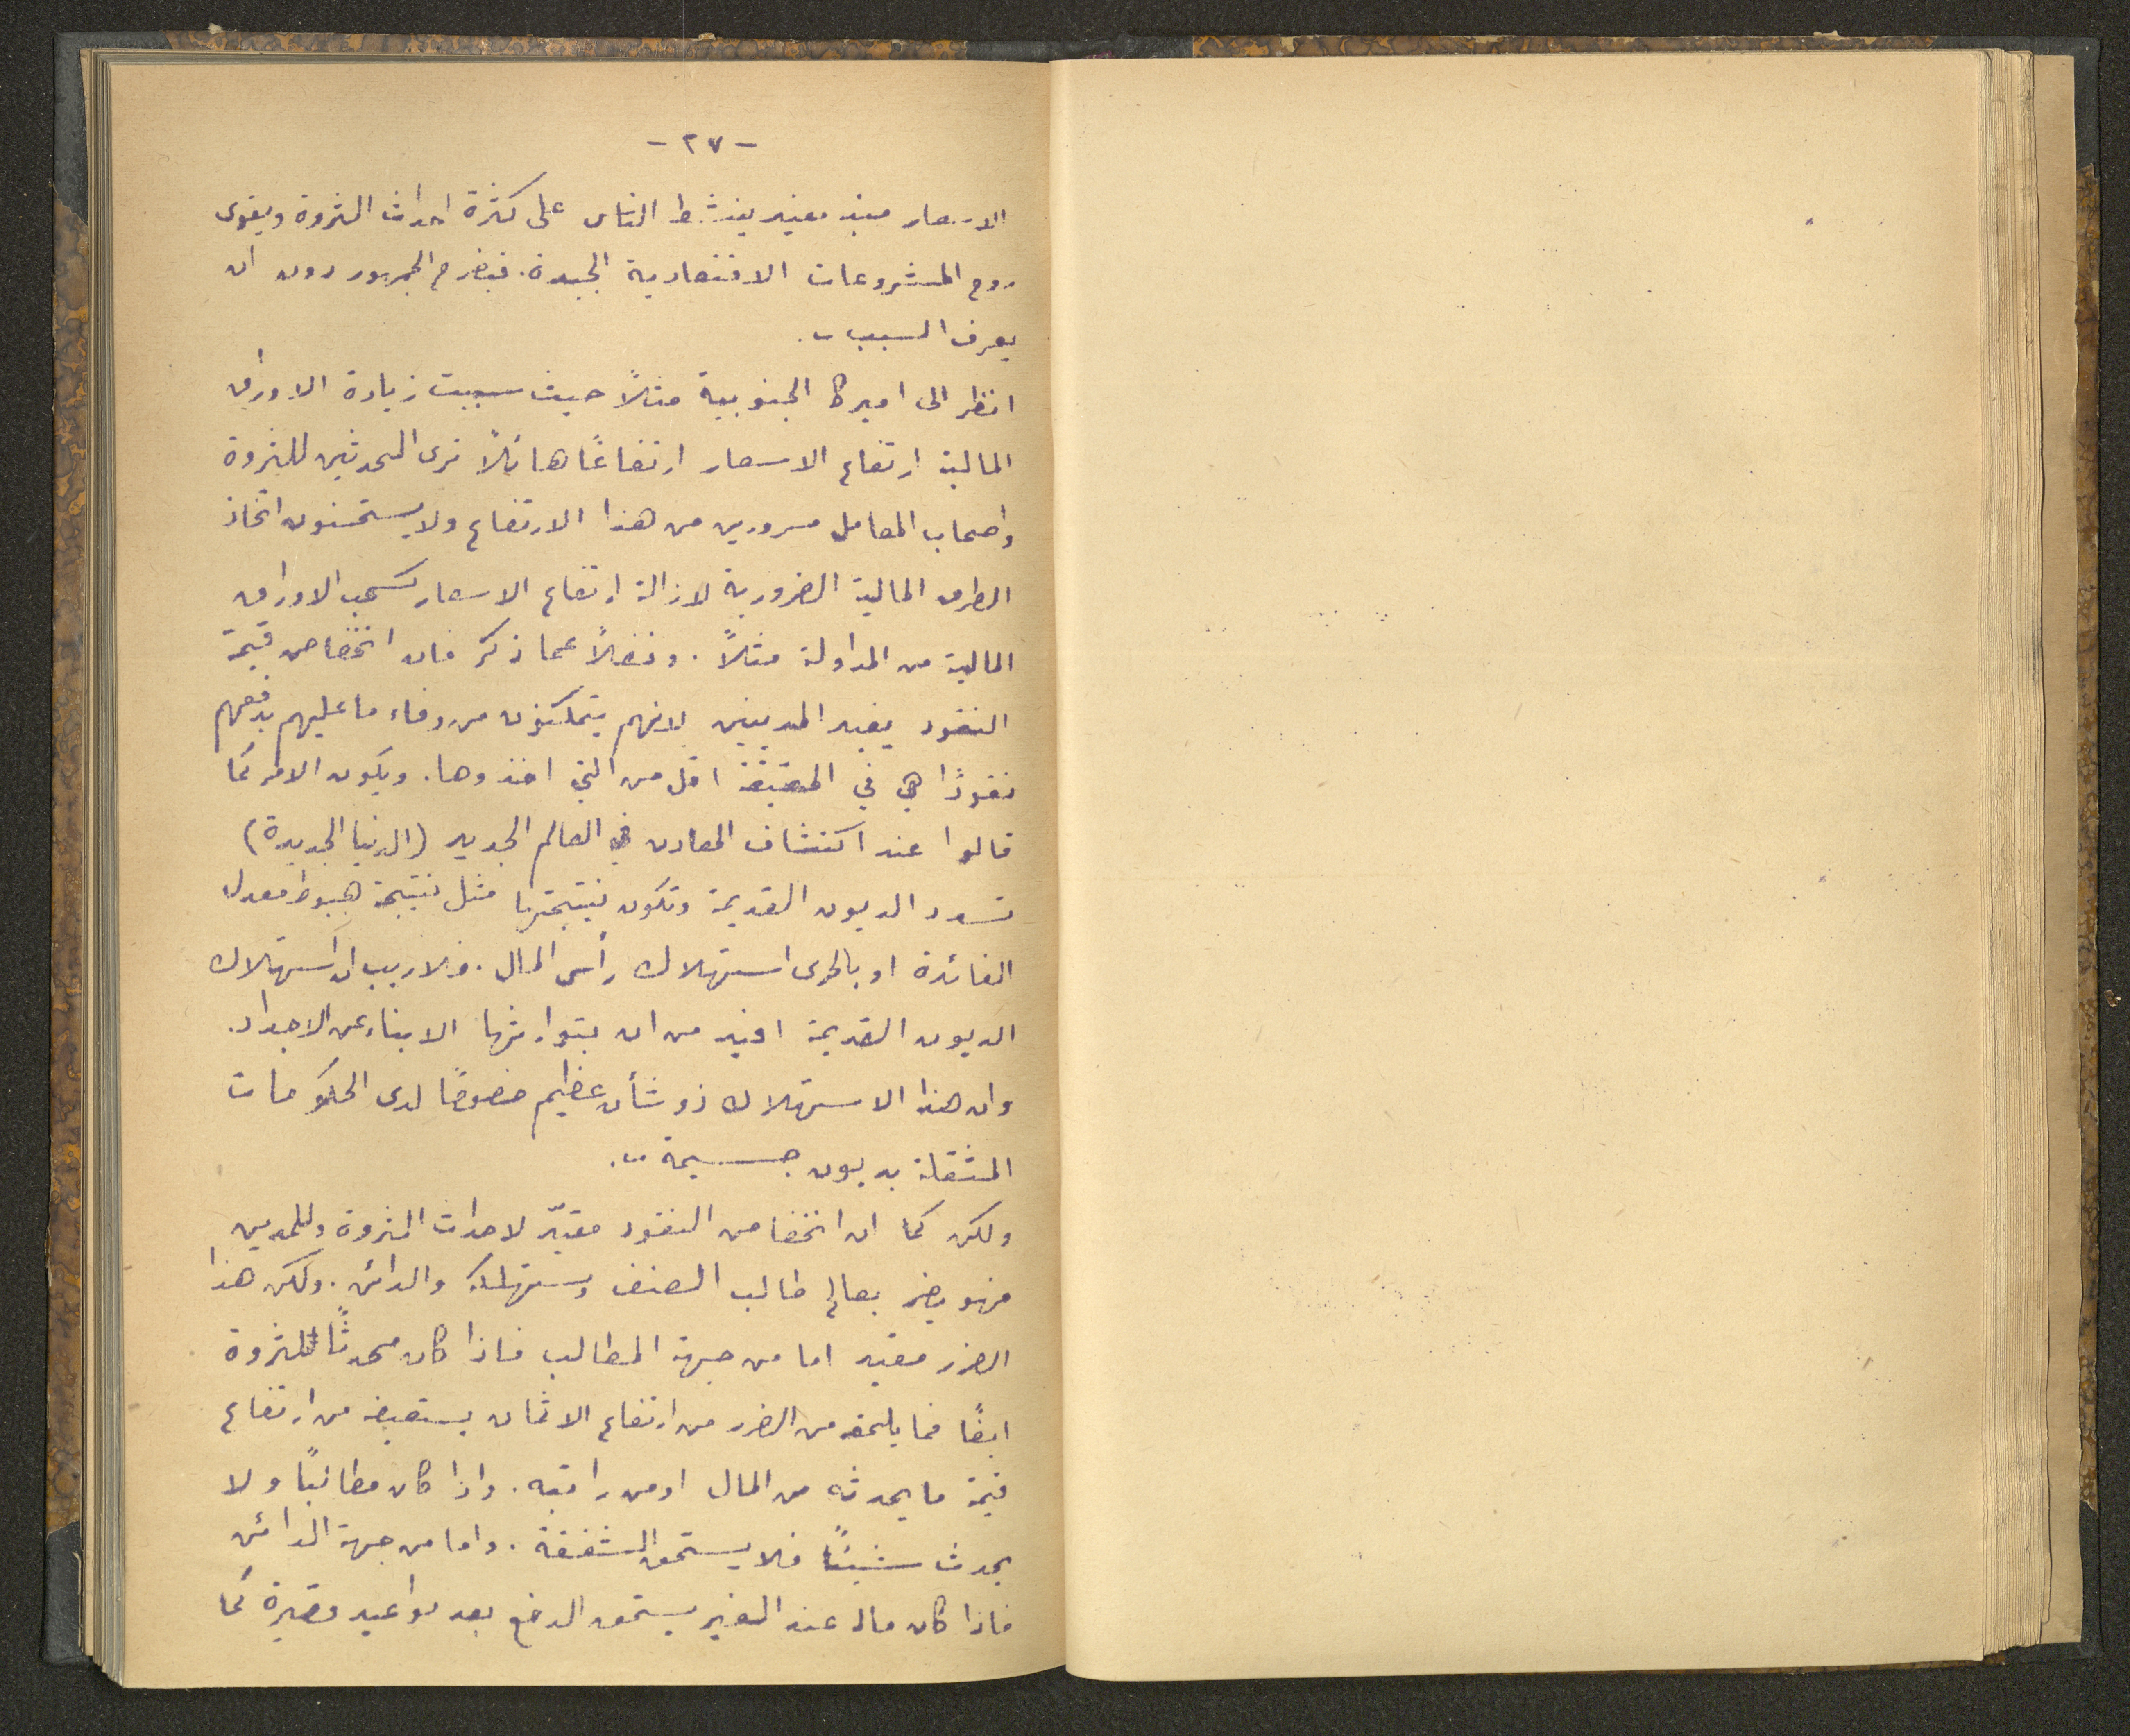 - ٢٧ -
الاسعار مبني مفيد ينشط الناس على كثرة احداث الثروة ويقوى
روح المشروعات الاقتصادية الجيدة. فيفرح الجمهور دون ان
يعرف السبب.
انظر الى اميركا الجنوبية مثلاً حيث سببت زيادة الاوراق
المالية ارتفاع الاسعار ارتفاعًا هائلاً ترى المحدثين للثروة
واصحاب المعامل مسرورين من هذا الارتفاع ولا يستحسنون اتخاذ
الطرق المالية الضرورية لازالة ارتفاع الاسعار كسحب الاوراق
المالية من المداولة مثلاً. وفضلاً عما ذكر فان انخفاض قيمة
النقود يفيد المديينين لانهم يتمكنون من وفاء ما عليهم بدفعهم
نقودًا هي في الحقيقة اقل من التي اخذوها. ويكون الامر كما
قالوا عند اكتشاف المعادن في العالم الجديد (الدنيا الجديدة)
تسدد الديون القديمة وتكون نتيجتها مثل نتيجة هبوط معدل
الفائدة او بالحرى استهلاك رأس المال. ولا ريب ان استهلاك
الديون القديمة افيد من ان يتوارثها الابناء عن الاجداد.
وان هذا الاستهلاك ذو شأن عظيم خصوصًا لدى الحكومات
المثقلة بديون جسيمة.
ولكن كما ان انخفاض النقود مفيد لاحداث الثروة وللمدين
فهو يضر بعالم طالب الصنف ومستهلكه والدائن. ولكن هذا
الضرر مقيد اما من جهة المطالب فاذا كان محدثًا للثروة
ايضًا فما يلحقه من الضرر من ارتفاع الاثمان يستعيضه من ارتفاع
قيمة ما يحدثه من المال او من راتبه. واذا كان مطالبًا ولا
يحدث شيئًا فلا يستحق الشفقة. واما من جهة الدائن
فاذا كان ماله عند الغير يستحق الدفع بعد مواعيد قصيرة كما